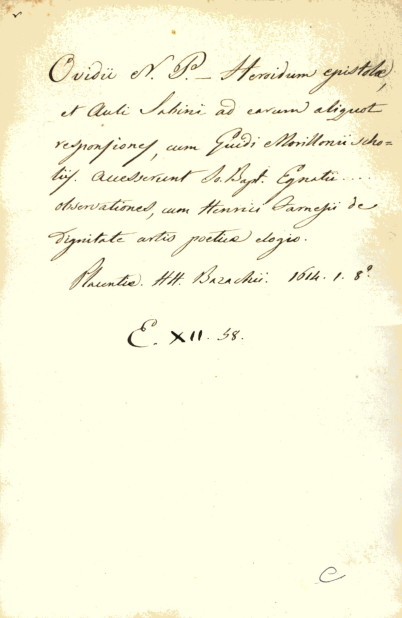 Ovidii N. P. — Heroidum epistolæ,
et Auli Sabini ad earum aliquot
responsiones, cum Guidi Morillonii scho=
liis. Accesserunt Jo. Bapt. Egnatii ....
observationes, cum Henrici Farnesii de
dignitate artis poeticæ elogio.
Placentiæ. HH. Bazachii. 1614. 1. 8º
E. XII. 58.
C